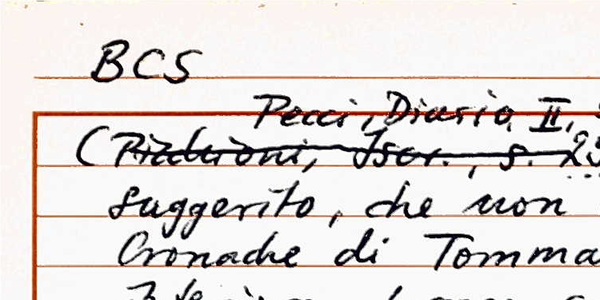 BCS
Pecci, Diario, II,
(
suggerito, che non
Cronache di Tomma